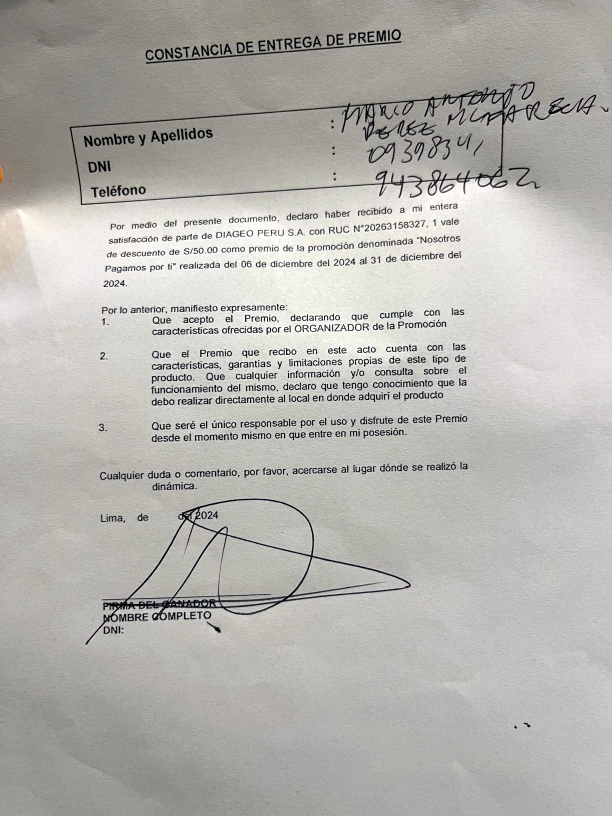 CONSTANCIA DE ENTREGA DE PREMIO
Nombre y Apellidos : MARIO ANTONIO
PEREZ
DNI : 09398341
Teléfono : 943864062
Por medio del presente documento, declaro haber recibido a mi entera
satisfacción de parte de DIAGEO PERU S.A. con RUC N°20263158327, 1 vale
de descuento de S/50.00 como premio de la promoción denominada "Nosotros
Pagamos por ti" realizada del 06 de diciembre del 2024 al 31 de diciembre del
2024.
Por lo anterior, manifiesto expresamente:
1. Que acepto el Premio, declarando que cumple con las
características ofrecidas por el ORGANIZADOR de la Promoción
2. Que el Premio que recibo en este acto cuenta con las
características, garantías y limitaciones propias de este tipo de
producto. Que cualquier información y/o consulta sobre el
funcionamiento del mismo, declaro que tengo conocimiento que la
debo realizar directamente al local en donde adquirí el producto
3. Que seré el único responsable por el uso y disfrute de este Premio
desde el momento mismo en que entre en mi posesión.
Cualquier duda o comentario, por favor, acercarse al lugar dónde se realizó la
dinámica.
Lima, de del 2024
FIRMA DEL GANADOR
NOMBRE COMPLETO
DNI: